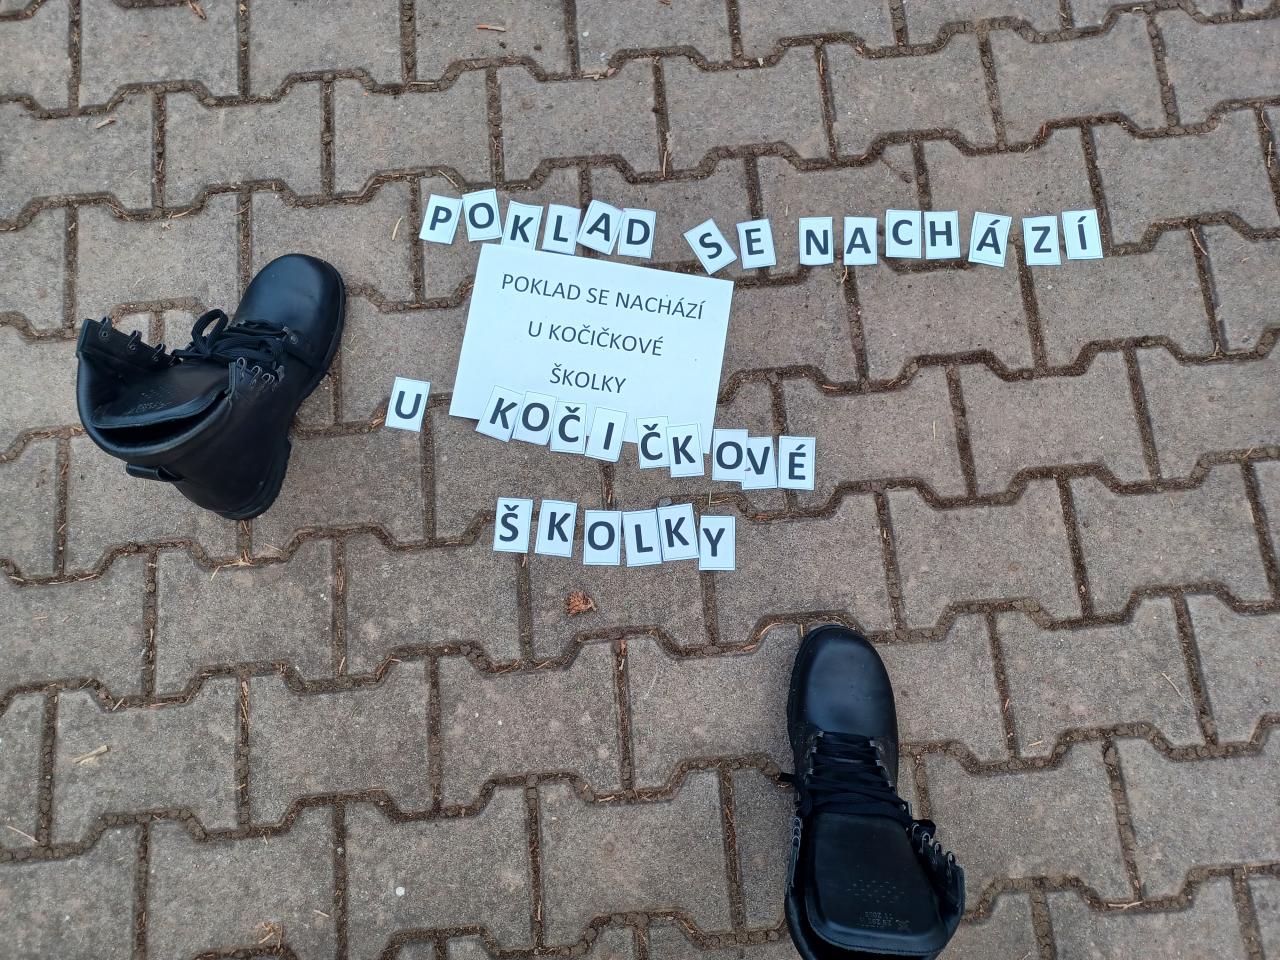 POKLAD SE NACHÁZÍ
POKLAD SE NACHÁZÍ
U KOČIČKOVÉ
ŠKOLKY
U KOČIČKOVÉ
ŠKOLKY